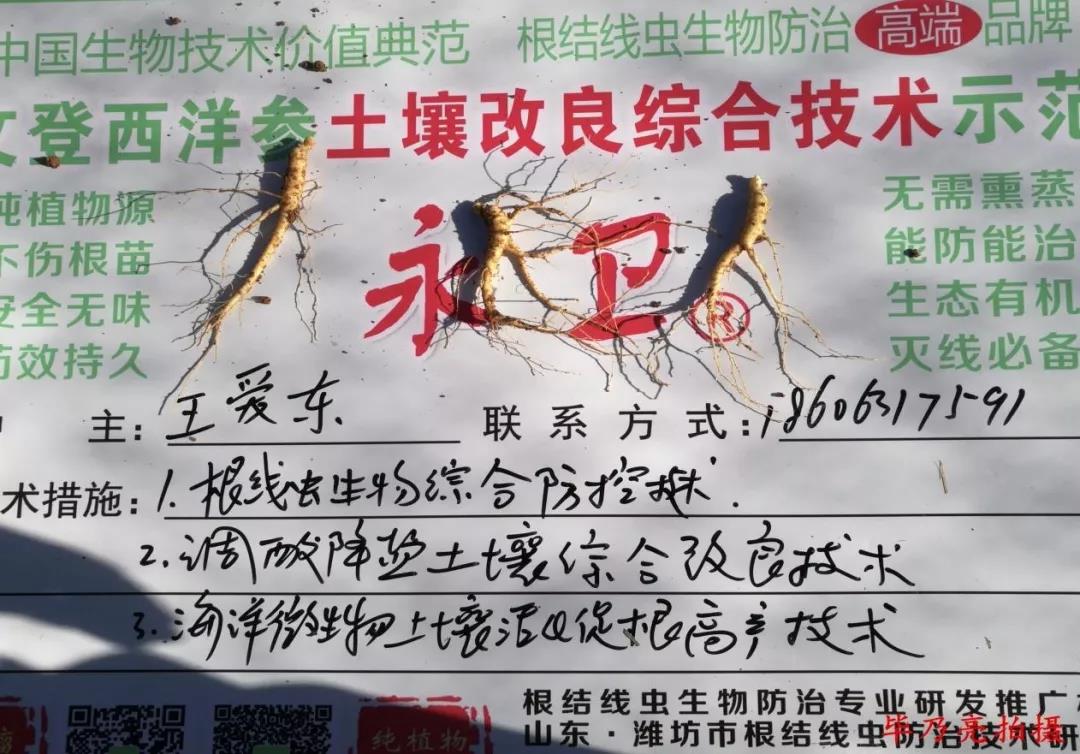 中国生物技术价值典范 根结线虫生物防治 高端 品牌
文登西洋参土壤改良综合技术示范
纯植物源
不伤根苗
安全无味
药效持久
永卫®
无需熏蒸
能防能治
生态有机
灭线必备
主: 王爱东 联系方式: 18606317591
术措施: 1. 根线虫生物综合防控技术.
2. 调酸降盐土壤综合改良技术
3. 海洋微生物土壤活化促根高产技术
纯植物
根结线虫生物防治专业研发推广
山东·潍坊市根结线虫防治技术研
毕乃亮拍摄